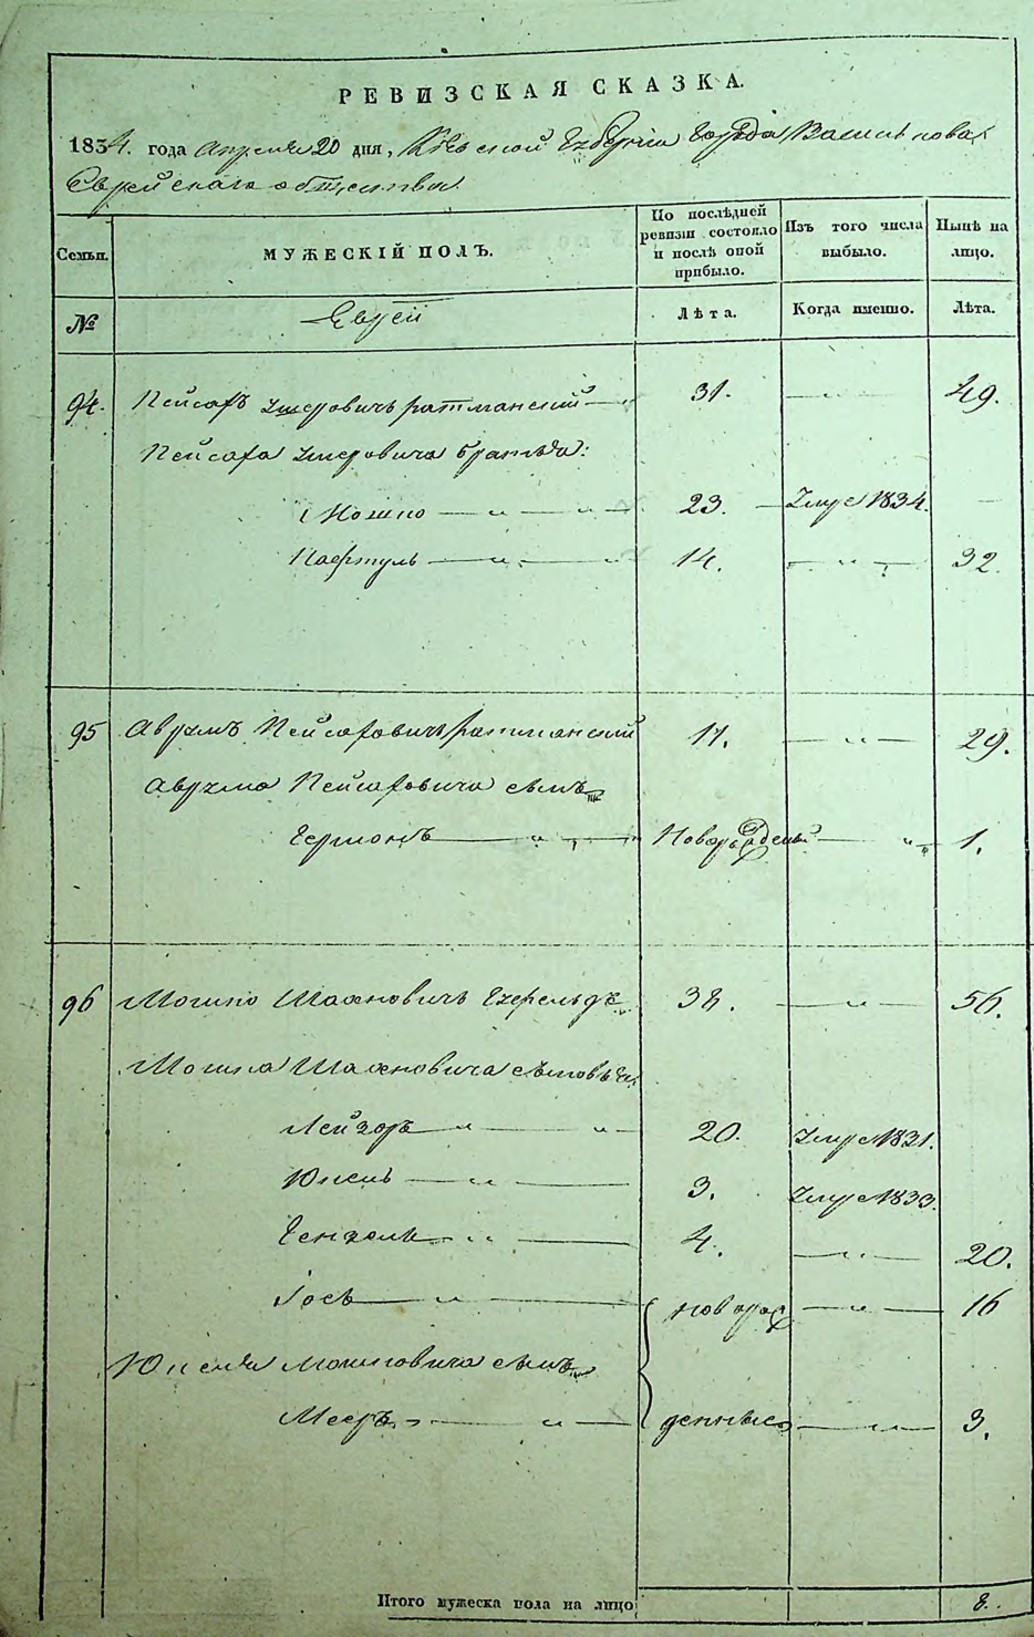 РЕВИЗСКАЯ СКАЗКА.
1834. года Апреля 20 дня, Кіевской Губерніи Города Василькова
Еврейскаго общества.
Семьи. МУЖЕСКІЙ ПОЛЪ. По послѣдней ревизіи состояло и послѣ оной прибыло. Изъ того числа выбыло. Нынѣ на лицо.
№ Евреи Лѣта. Когда именно. Лѣта.
94. Пейсахъ Умеровичъ Ратманскій 31. — „ — 49.
Пейсаха Умеровича братья:
Мошко — „ — „ — 23. — Умре 1834. —
Нафтуль — „ — „ 14. — „ — 32.
95 Аврумъ Пейсаховичъ Ратманскій 11. — „ — 29.
Аврума Пейсаховича сынъ
Гершонъ — „ — Новорожденный — „ — 1.
96 Мошко Шаановичъ 38. — „ — 56.
Мошка Шаановича сыновья
Лейзоръ — „ — „ — 20. Умре 1831.
Юкель — „ — 3. Умре 1833.
— „ — 4. — „ — 20.
Іосъ — „ — новорож — „ — 16
Юкеля Мошковича сынъ
Мееръ — „ — денные — „ — 3.
Итого мужеска пола на лицо 8.